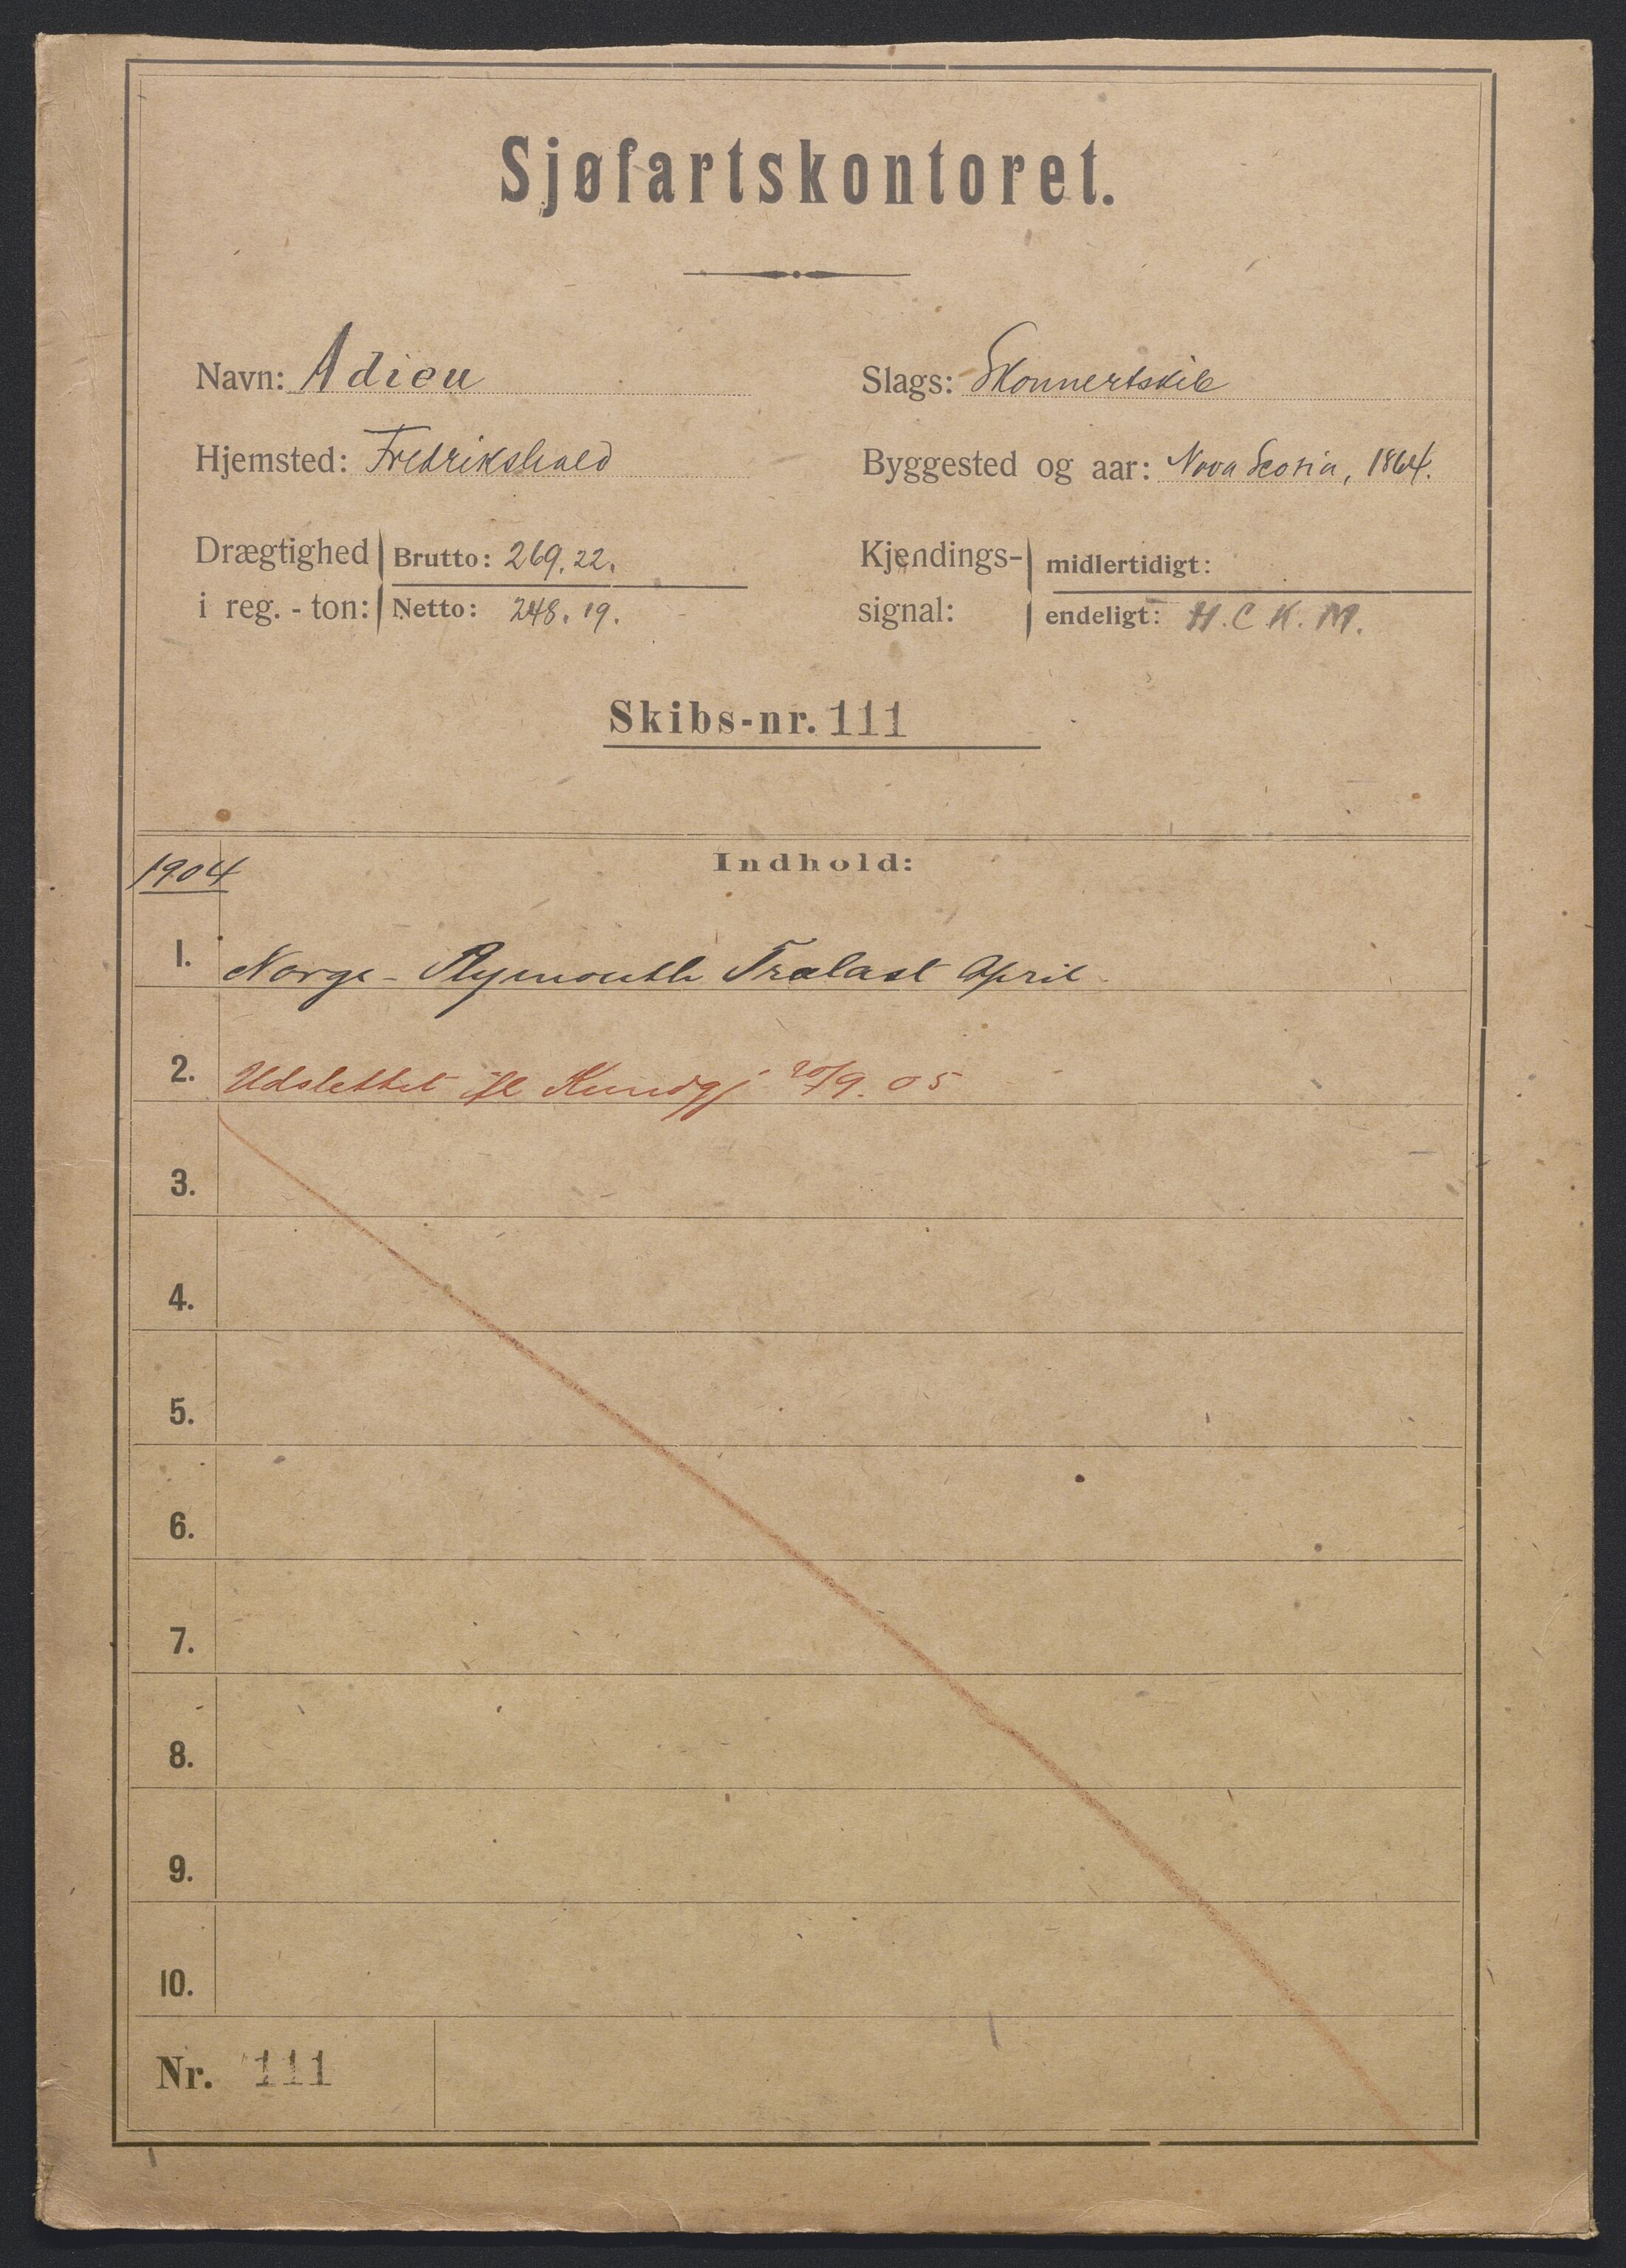 Sjøfartskontoret.
Navn: Adieu
Slags: Skonnertskib
Hjemsted: Fredrikshald
Byggested og aar: Nova Scotia, 1864.
Drægtighed i reg. - ton: Brutto: 269.22.
Netto: 248.19.
Kjendings-signal: midlertidigt:
endeligt: H.C.K.M.
Skibs-nr. 111
1904
Indhold:
1. Norge - Plymouth Trælast April
2. Udslettet ifl Kundgj 20/9. 05
3.
4.
5.
6.
7.
8.
9.
10.
Nr. 111